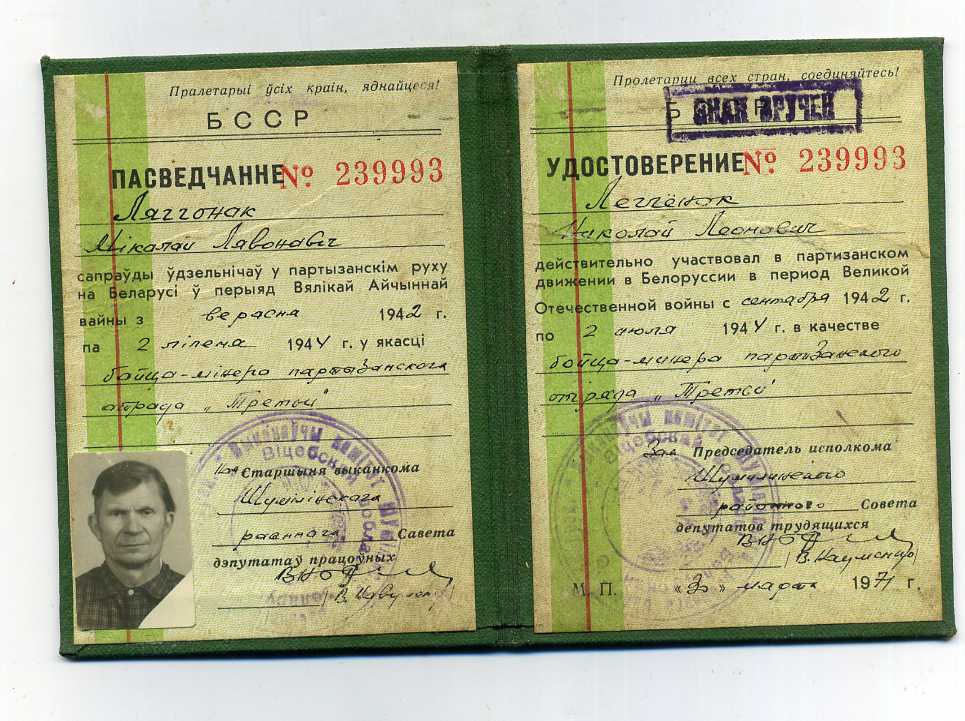 Пралетарыі ўсіх краін, яднайцеся!
БССР
ПАСВЕДЧАННЕ № 239993
Мікалай Лявонавіч
сапраўды ўдзельнічаў у партызанскім руху
на Беларусі ў перыяд Вялікай Айчыннай
вайны з верасня 1942 г.
па 2 ліпеня 1944 г. у якасці
байца-мінёра партызанскага
атрада „Третий"
Старшыня выканкома
Шумілінскага
раённага Савета
дэпутатаў працоўных
Пролетарии всех стран, соединяйтесь!
ЗНАК ВРУЧЕН
УДОСТОВЕРЕНИЕ № 239993
Николай Леонович
действительно участвовал в партизанском
движении в Белоруссии в период Великой
Отечественной войны с сентября 1942 г.
по 2 июля 1944 г. в качестве
бойца-минера партизанского
отряда „Третий"
Зам Председатель исполкома
Шумилинского
районного Совета
депутатов трудящихся
М. П. марта 1971 г.